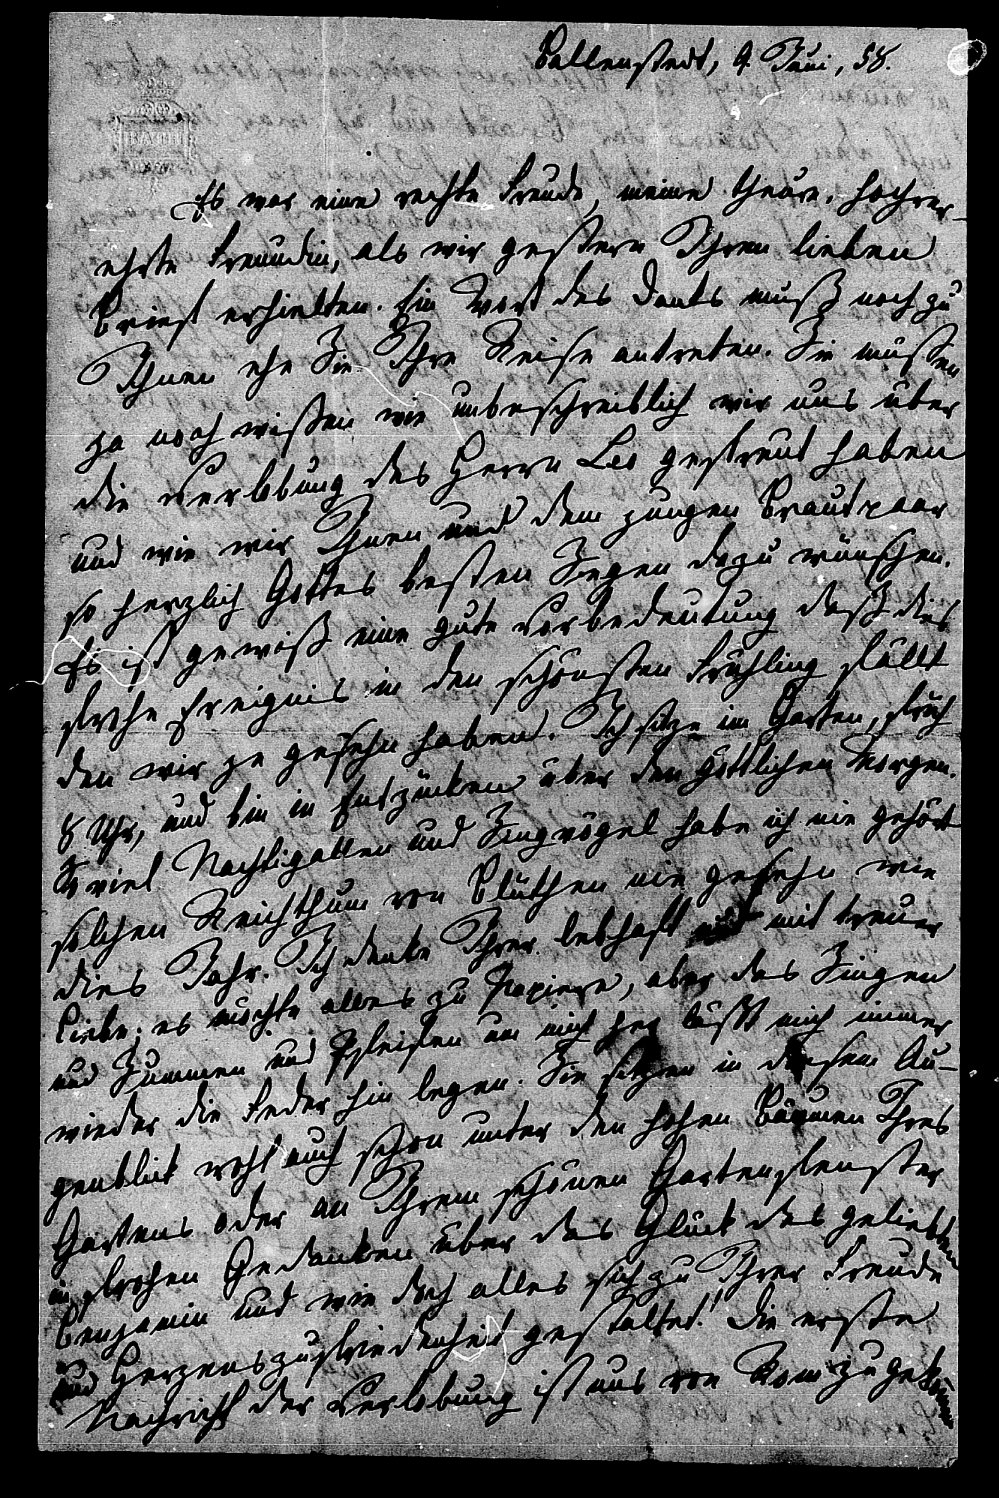 Ballenstedt, 9. Juni, 58.
Es war eine rechte Freude, meine theure, hochver-
ehrte Freundin, als wir gestern Ihren lieben
Brief erhielten. Ein Wort des Danks muß noch zu
Ihnen ehe Sie Ihre Reise antreten. Sie müssen
ja noch wißen wie unbeschreiblich wir uns über
die Verlobung des Herrn Leo gefreut haben
und wie wir Ihnen und dem jungen Brautpaar
so herzlich Gottes besten Segen dazu wünschen.
Es ist gewiß eine gute Vorbedeutung daß dies
frohe Ereignis in den schönsten Frühling fällt
den wir je gesehn haben. Ich sitze im Garten, früh
8 Uhr, und bin in Entzücken über den göttlichen Morgen.
So viel Nachtigallen und Singvögel habe ich nie gehört
solchen Reichthum von Blüthen nie gesehn wie
dies Jahr. Ich denke Ihrer lebhaft mit treuer
Liebe; es möchte alles zu Papiere, aber das Singen
und Summen und Pfeifen um mich her läßt mich immer
wieder die Feder hin legen. Sie sitzen in diesem Au-
genblick wohl auch schon unter den hohen Bäumen Ihres
Gartens oder an Ihrem schönen Gartenfenster
in frohen Gedanken über das Glück des geliebten
Benjamin und wie doch alles sich zu Ihrer Freude
und Herzenszufriedenheit gestaltet! Die erste
Nachricht der Verlobung ist uns von Rom zugekommen